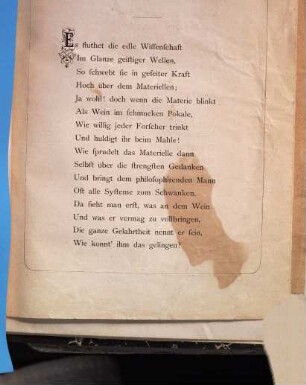 Es fluthet die edle Wissenschaft
Im Glanze geistiger Wellen,
So schwebt sie in gefeiter Kraft
Hoch über dem Materiellen;
Ja wohl! doch wenn die Materie blinkt
Als Wein im schmucken Pokale,
Wie willig jeder Forscher trinkt
Und huldigt ihr beim Mahle!
Wie sprudelt das Materielle dann
Selbst über die strengsten Gedanken
Und bringt dem philosophirenden Mann
Oft alle Systeme zum Schwanken.
Da sieht man erst, was an dem Wein
Und was er vermag zu vollbringen,
Die ganze Gelahrtheit nennt er sein,
Wie konnt' ihm das gelingen?